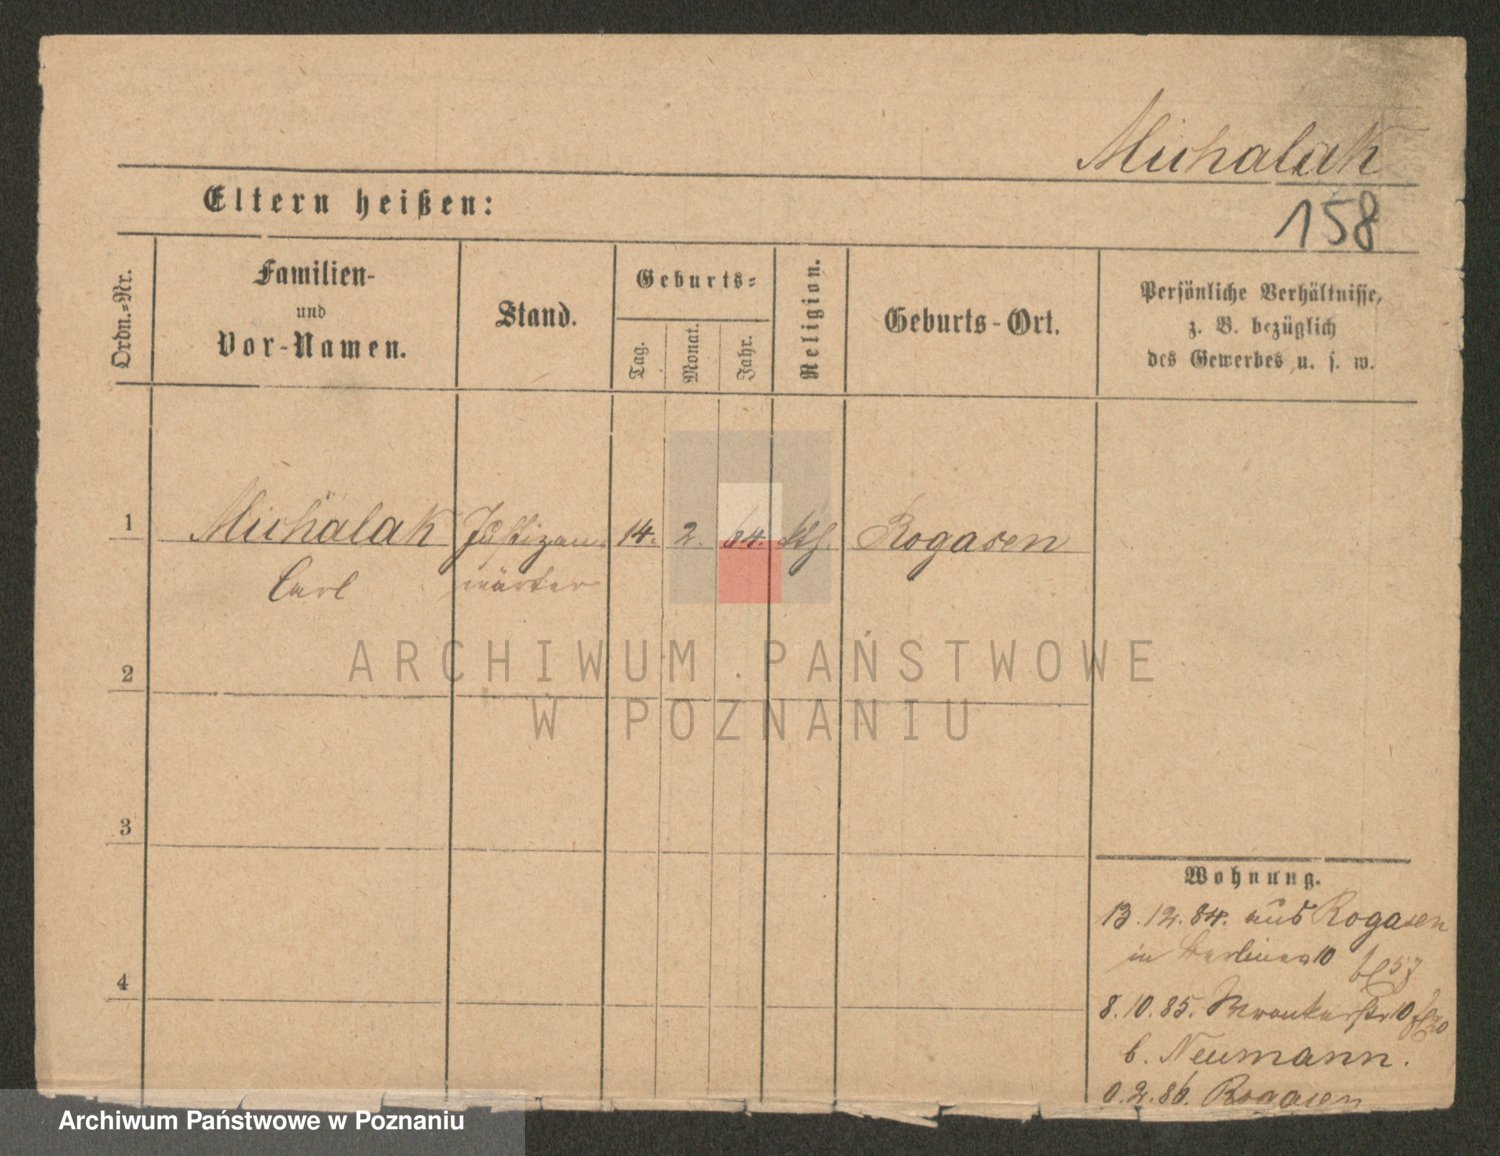 Michalak
158
Eltern heißen:
Ordn.-Nr.
Familien-
und
Vor-Namen.
Stand.
Geburts-
Tag.
Monat.
Jahr.
Religion.
Geburts-Ort.
Persönliche Verhältnisse,
z. B. bezüglich
des Gewerbes u. s. w.
1 Michalak Justizan- 14. 2. 64. kth. Rogasen
Carl wärter
2
ARCHIWUM PAŃSTWOWE
W POZNANIU
3
4
Wohnung.
13. 12. 84. aus Rogasen
in Berliner 10
8. 10. 85. Wronkerstr 10
b. Neumann.
2. 86. Rogasen
Archiwum Państwowe w Poznaniu